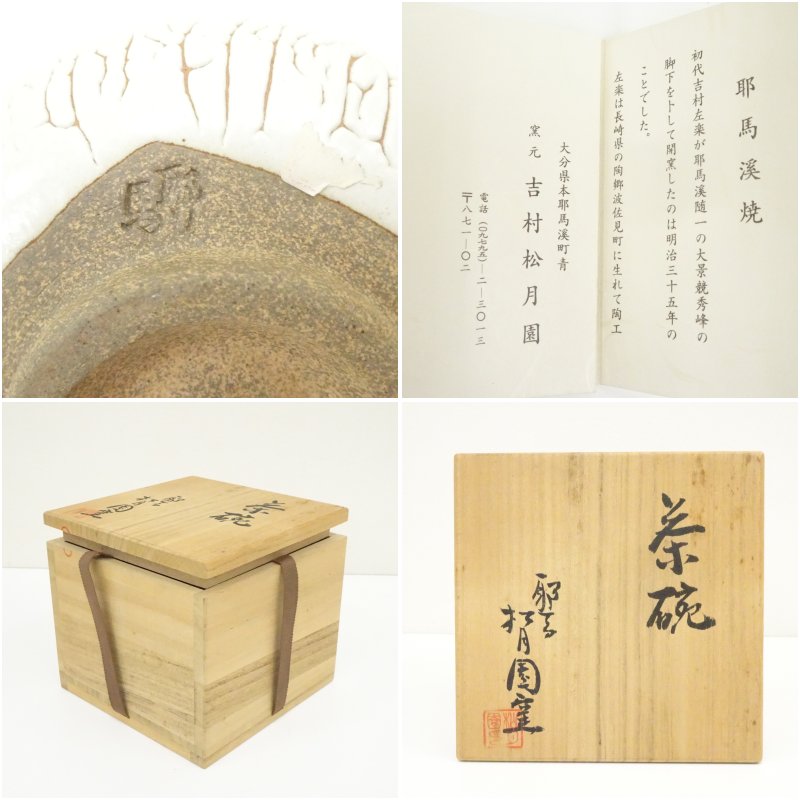 耶馬
耶馬溪焼
初代吉村左楽が耶馬溪随一の大景競秀峰の
脚下を卜して開窯したのは明治三十五年の
ことでした。
左楽は長崎県の陶郷波佐見町に生れて陶工
大分県本耶馬溪町青
窯元 吉村松月園
電話(〇九七九五)—二—三〇一三
〒八七一—〇二
茶碗
耶馬
松月園窯
茶碗
耶馬
松月園窯